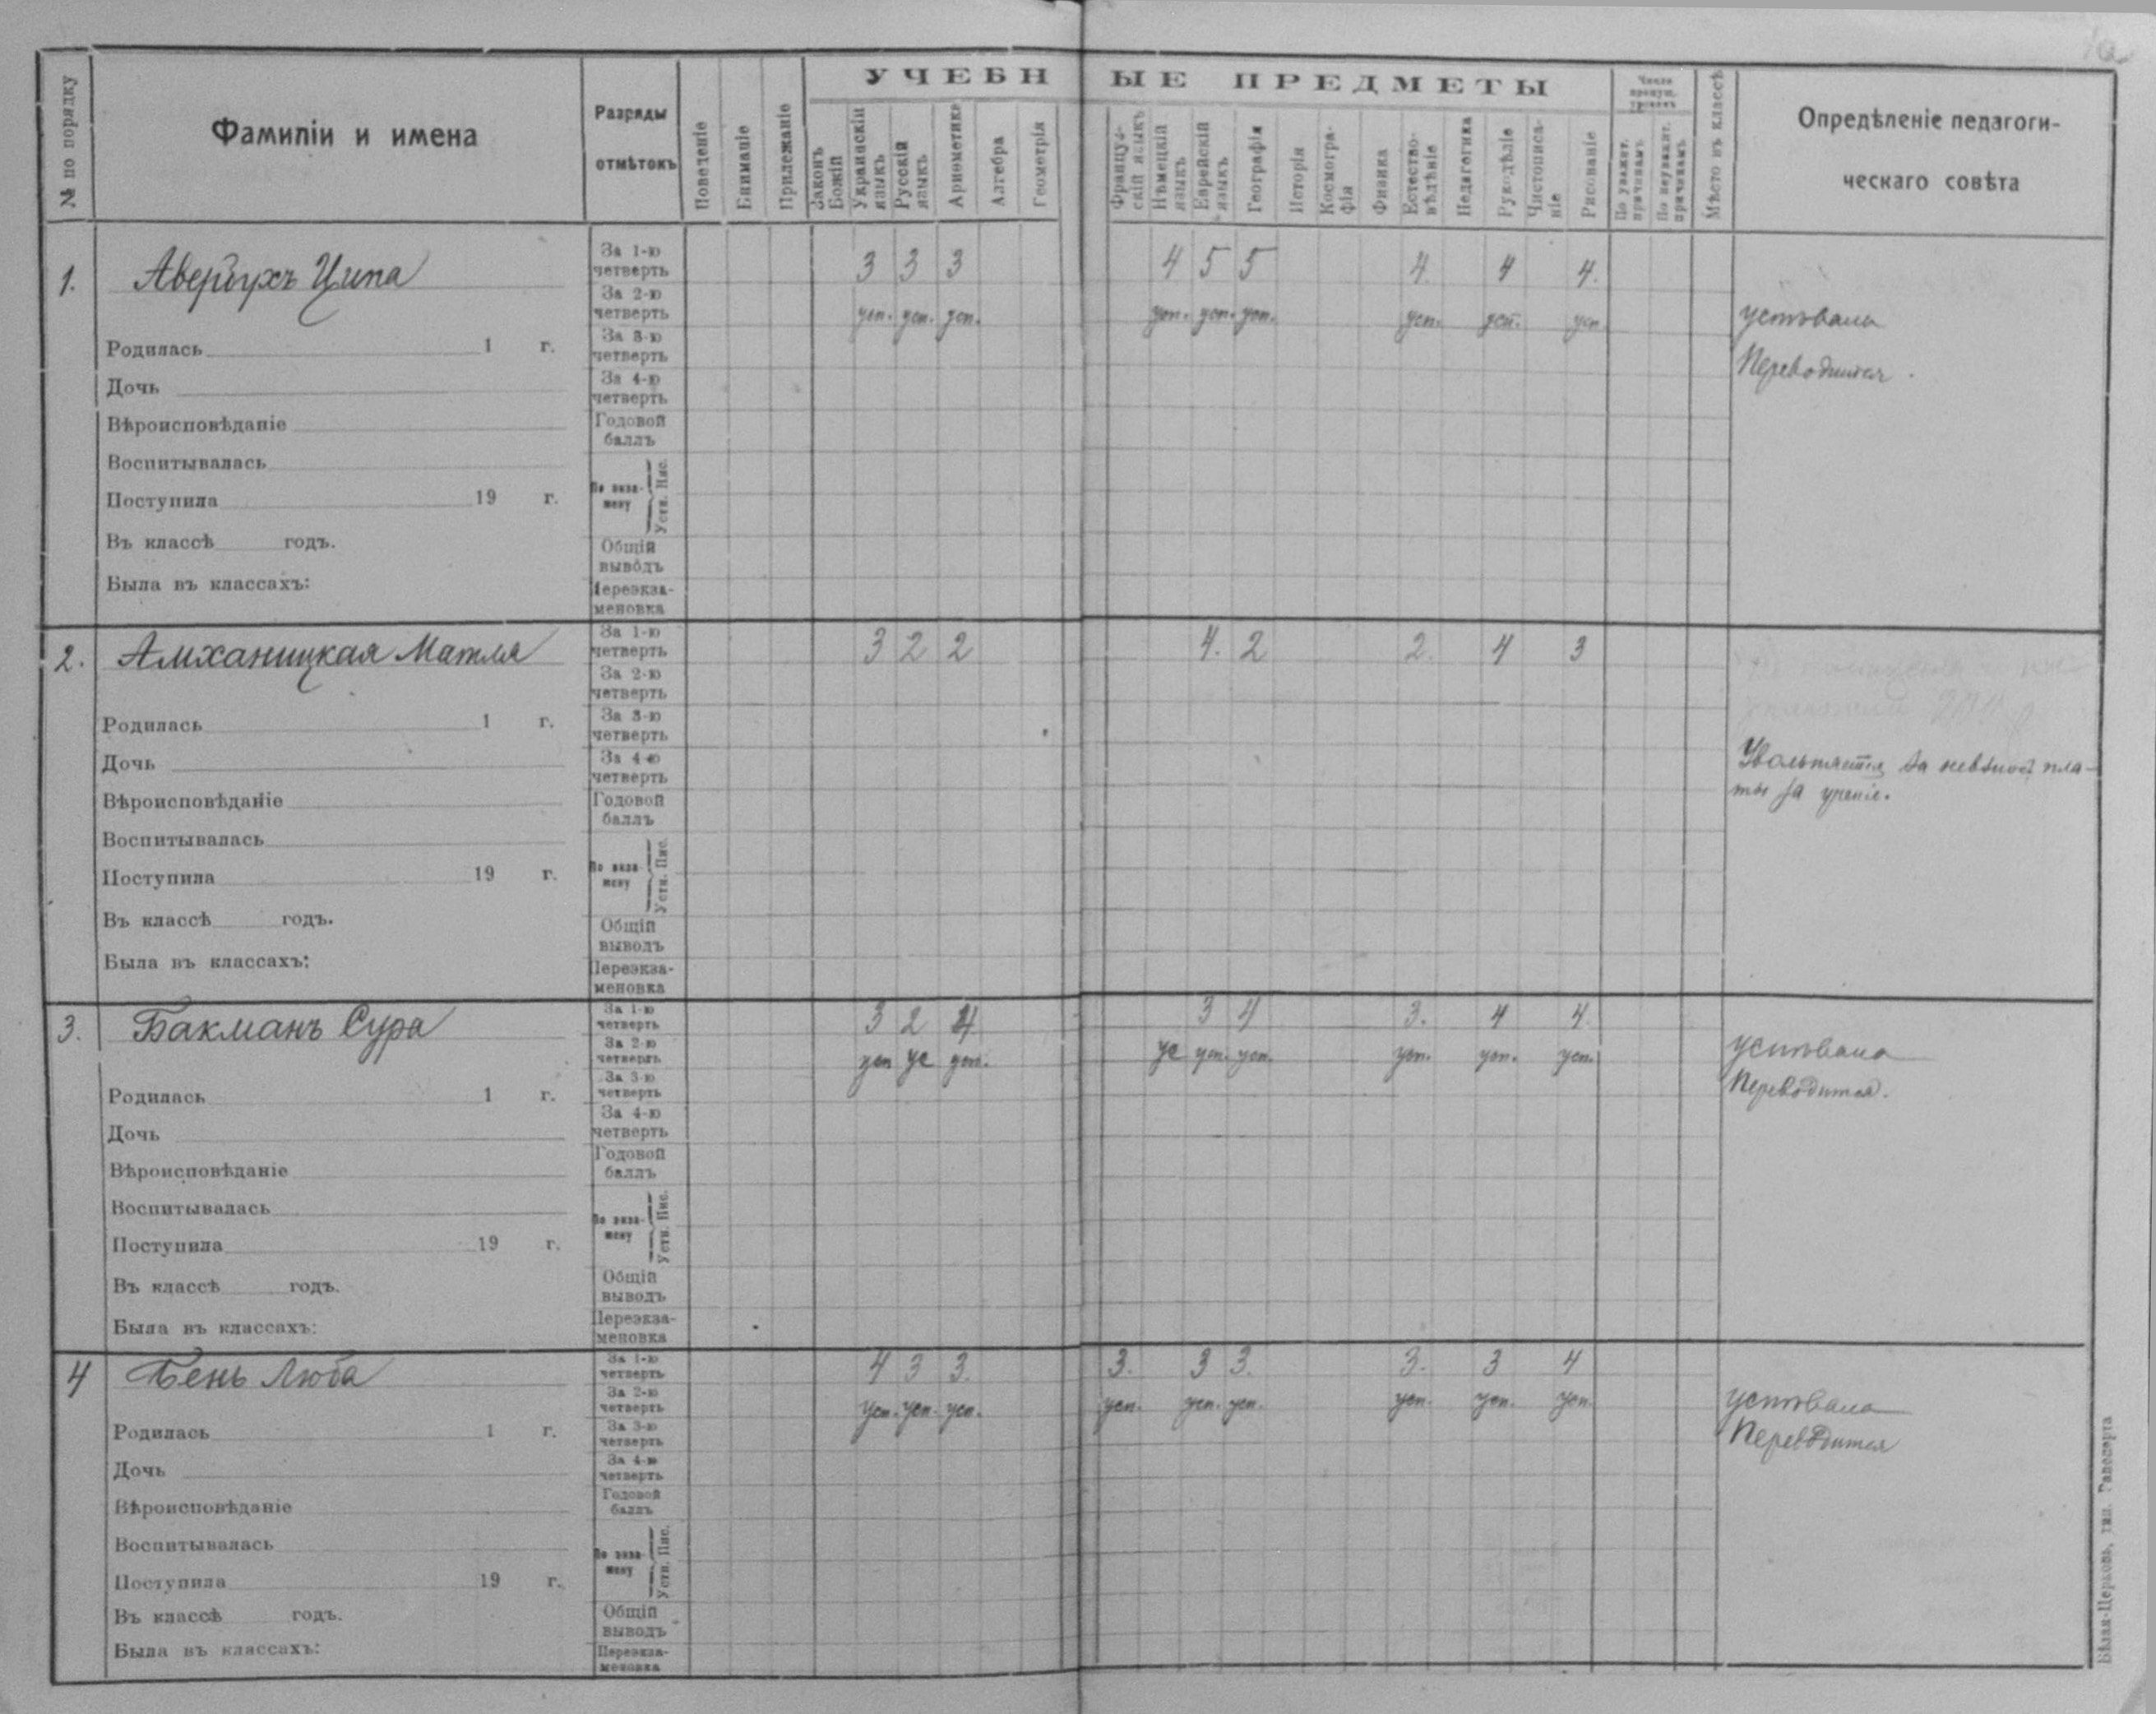 УЧЕБНЫЕ ПРЕДМЕТЫ
№ по порядку
Фамиліи и имена
Разряды отмѣтокъ
Поведеніе
Вниманіе
Прилежаніе
Законъ Божій
Украинскій языкъ
Русскій языкъ
Ариѳметика
Алгебра
Геометрія
Француз-скій языкъ
Нѣмецкій языкъ
Еврейскій языкъ
Географія
Исторія
Космогра-фія
Физика
Естество-вѣдѣніе
Педагогика
Рукодѣліе
Чистописа-ніе
Рисованіе
Число пропущ. уроковъ
По уважит. причинамъ
По неуважит. причинамъ
Мѣсто въ классѣ
Опредѣленіе педагоги-
ческаго совѣта
1. Авербухъ Ципа
За 1-ю четверть 3 3 3 4 5 5 4. 4 4.
За 2-ю четверть усп. усп. усп. усп. усп. усп. усп. усп. усп.
успѣвала
Переводится.
За 3-ю четверть
За 4-ю четверть
Годовой баллъ
По экза-мену Пис. Устн.
Общій выводъ
Переэкза-меновка
Родилась 1 г.
Дочь
Вѣроисповѣданіе
Воспитывалась
Поступила 19 г.
Въ классѣ годъ.
Была въ классахъ:
2. Амханицкая Матля
За 1-ю четверть 3 2 2 4. 2 2. 4 3
За 2-ю четверть
За 3-ю четверть
За 4-ю четверть
Годовой баллъ
По экза-мену Пис. Устн.
Общій выводъ
Переэкза-меновка
Увольняется за невзнос пла-
ты за ученіе.
Родилась 1 г.
Дочь
Вѣроисповѣданіе
Воспитывалась
Поступила 19 г.
Въ классѣ годъ.
Была въ классахъ:
3. Бакманъ Сура
За 1-ю четверть 3 2 4 3 4 3. 4 4
За 2-ю четверть усп ус усп. ус усп. усп. усп. усп. усп.
успѣвала
Переводится.
За 3-ю четверть
За 4-ю четверть
Годовой баллъ
По экза-мену Пис. Устн.
Общій выводъ
Переэкза-меновка
Родилась 1 г.
Дочь
Вѣроисповѣданіе
Воспитывалась
Поступила 19 г.
Въ классѣ годъ.
Была въ классахъ:
4 Бень Люба
За 1-ю четверть 4 3 3. 3. 3 3. 3. 3 4
За 2-ю четверть усп. усп. усп. усп. усп. усп. усп. усп. усп.
успѣвала
Переводится
За 3-ю четверть
За 4-ю четверть
Годовой баллъ
По экза-мену Пис. Устн.
Общій выводъ
Переэкза-меновка
Родилась 1 г.
Дочь
Вѣроисповѣданіе
Воспитывалась
Поступила 19 г.
Въ классѣ годъ.
Была въ классахъ:
Бѣлая-Церковь, тип. Рапопорта